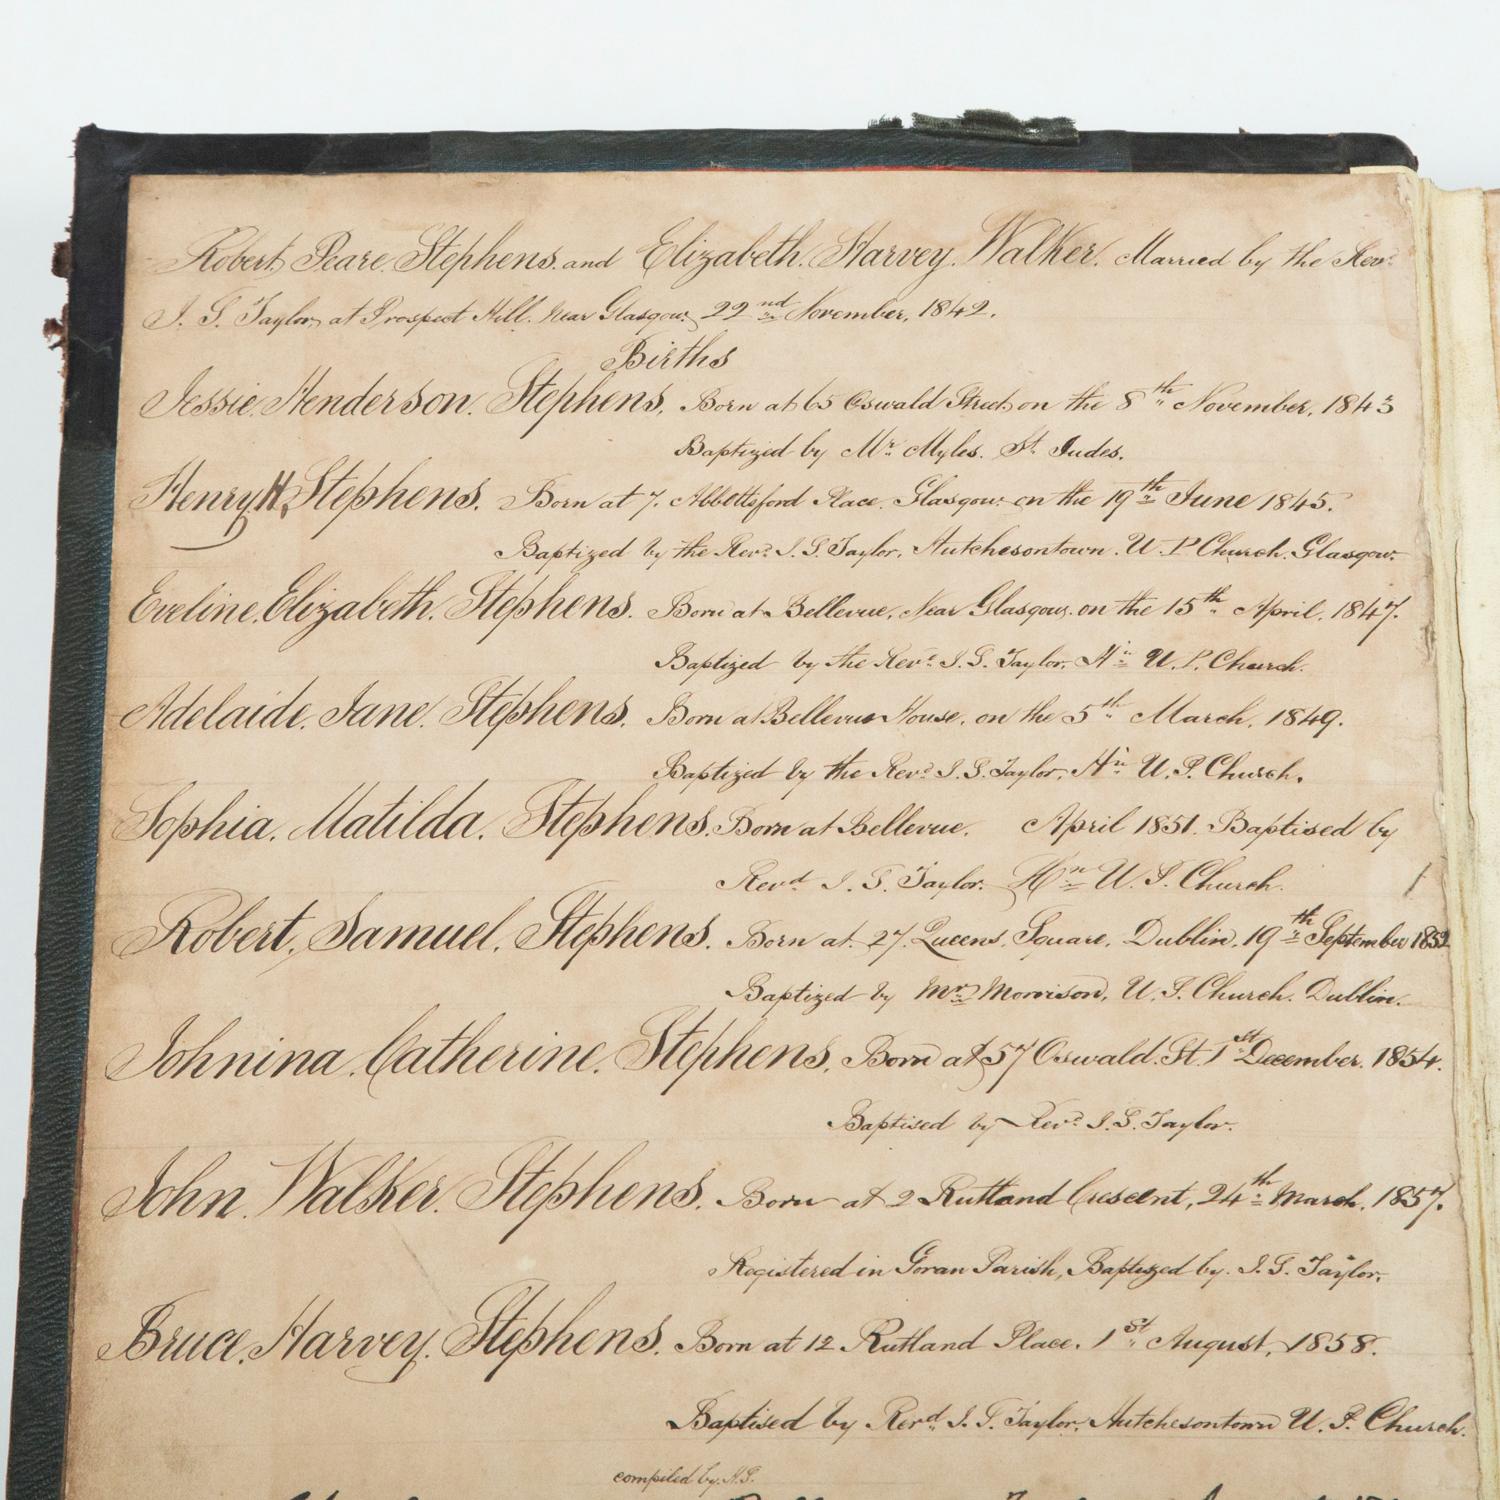 Robert Peare Stephens. and Elizabeth. Harvey. Walker. Married by the Revd
J. S. Taylor, at Prospect Hill. Near Glasgow. 22nd November, 1842.
Births
Jessie. Henderson. Stephens. Born at 65 Oswald Street on the 8th November. 1843
Baptized by Mr. Myles. St. Judes.
Henry H. Stephens. Born at 7. Abbottsford Place. Glasgow. on the 19th June 1845.
Baptized by the Revd J. S. Taylor, Hutchesontown. U. P Church. Glasgow.
Eveline. Elizabeth. Stephens. Born at Bellevue, Near Glasgow. on the 15th April. 1847.
Baptized by the Revd J. S. Taylor. Hn U. P. Church.
Adelaide. Jane. Stephens. Born at Bellevue House. on the 5th March. 1849.
Baptized by the Revd J. S. Taylor. Hn U. P. Church.
Sophia. Matilda. Stephens. Born at Bellevue. April 1851. Baptised by
Revd J. S. Taylor. Hn U. P. Church.
Robert. Samuel. Stephens. Born at. 27. Queens. Square. Dublin. 19th September 1852
Baptized by Mr Morrison, U. P. Church. Dublin.
Johnina. Catherine. Stephens. Born at 57 Oswald. St. 1st December. 1854.
Baptised by Revd J. S. Taylor.
John. Walker. Stephens. Born at 2 Rutland Crescent, 24th March. 1857.
Registered in Govan Parish, Baptized by. J. S. Taylor.
Bruce. Harvey. Stephens. Born at 12 Rutland Place. 1st August, 1858.
Baptised by Revd J. S. Taylor. Hutchesontown U. P. Church.
compiled by H.S.